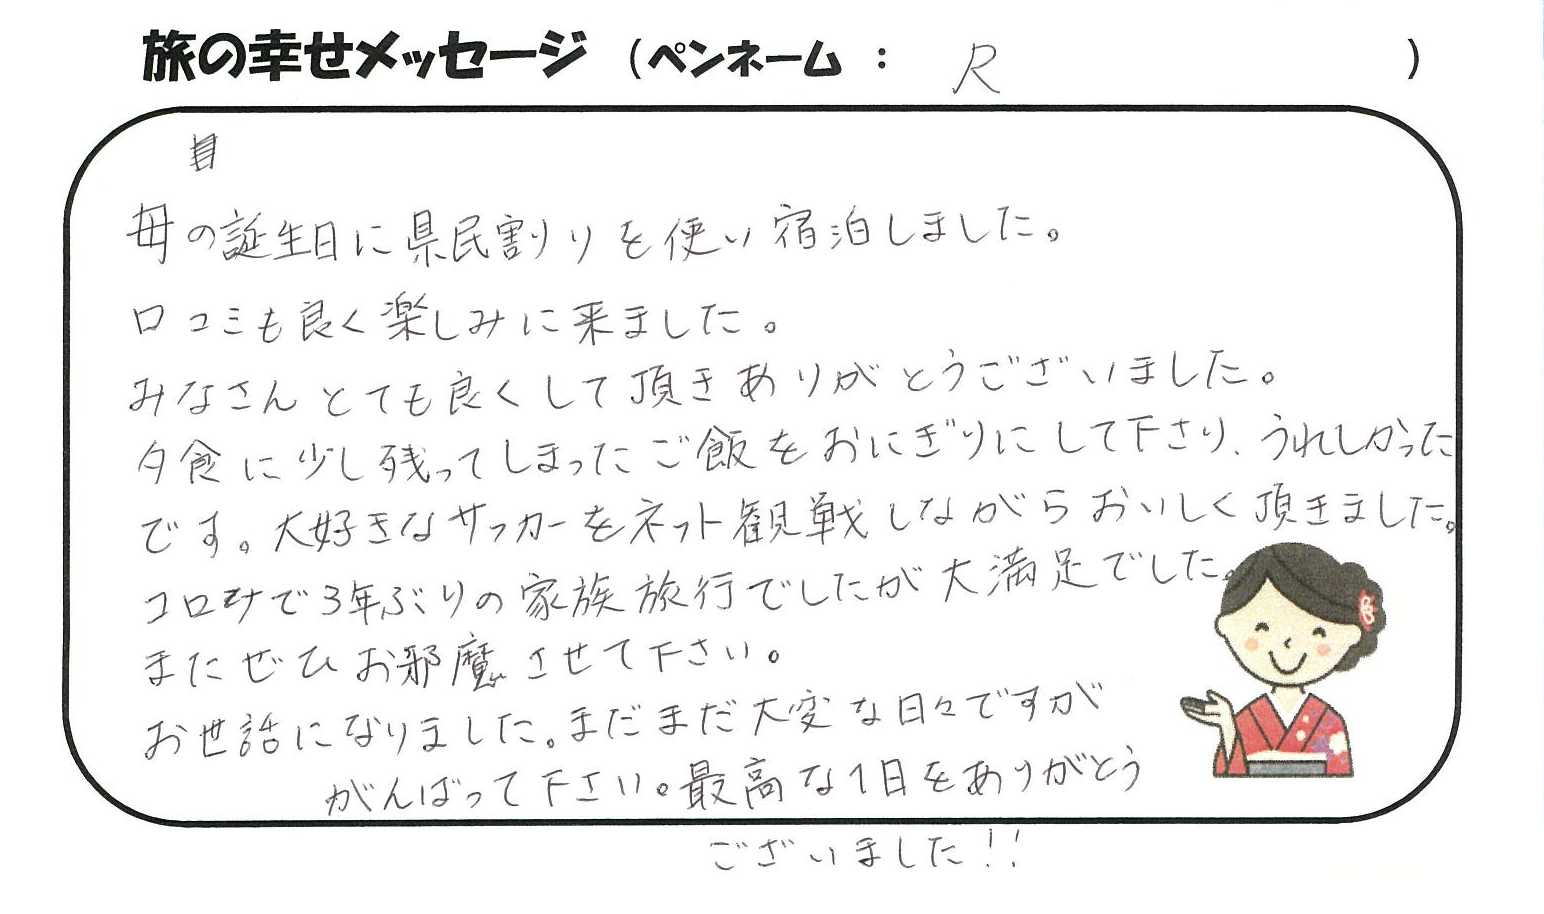 旅の幸せメッセージ（ペンネーム： R ）
母の誕生日に県民割りを使い宿泊しました。
口コミも良く楽しみに来ました。
みなさんとても良くして頂きありがとうございました。
夕食に少し残ってしまったご飯をおにぎりにして下さり、うれしかった
です。大好きなサッカーをネット観戦しながらおいしく頂きました。
コロナで3年ぶりの家族旅行でしたが大満足でした。
またぜひお邪魔させて下さい。
お世話になりました。まだまだ大変な日々ですが
がんばって下さい。最高な1日をありがとう
ございました!!